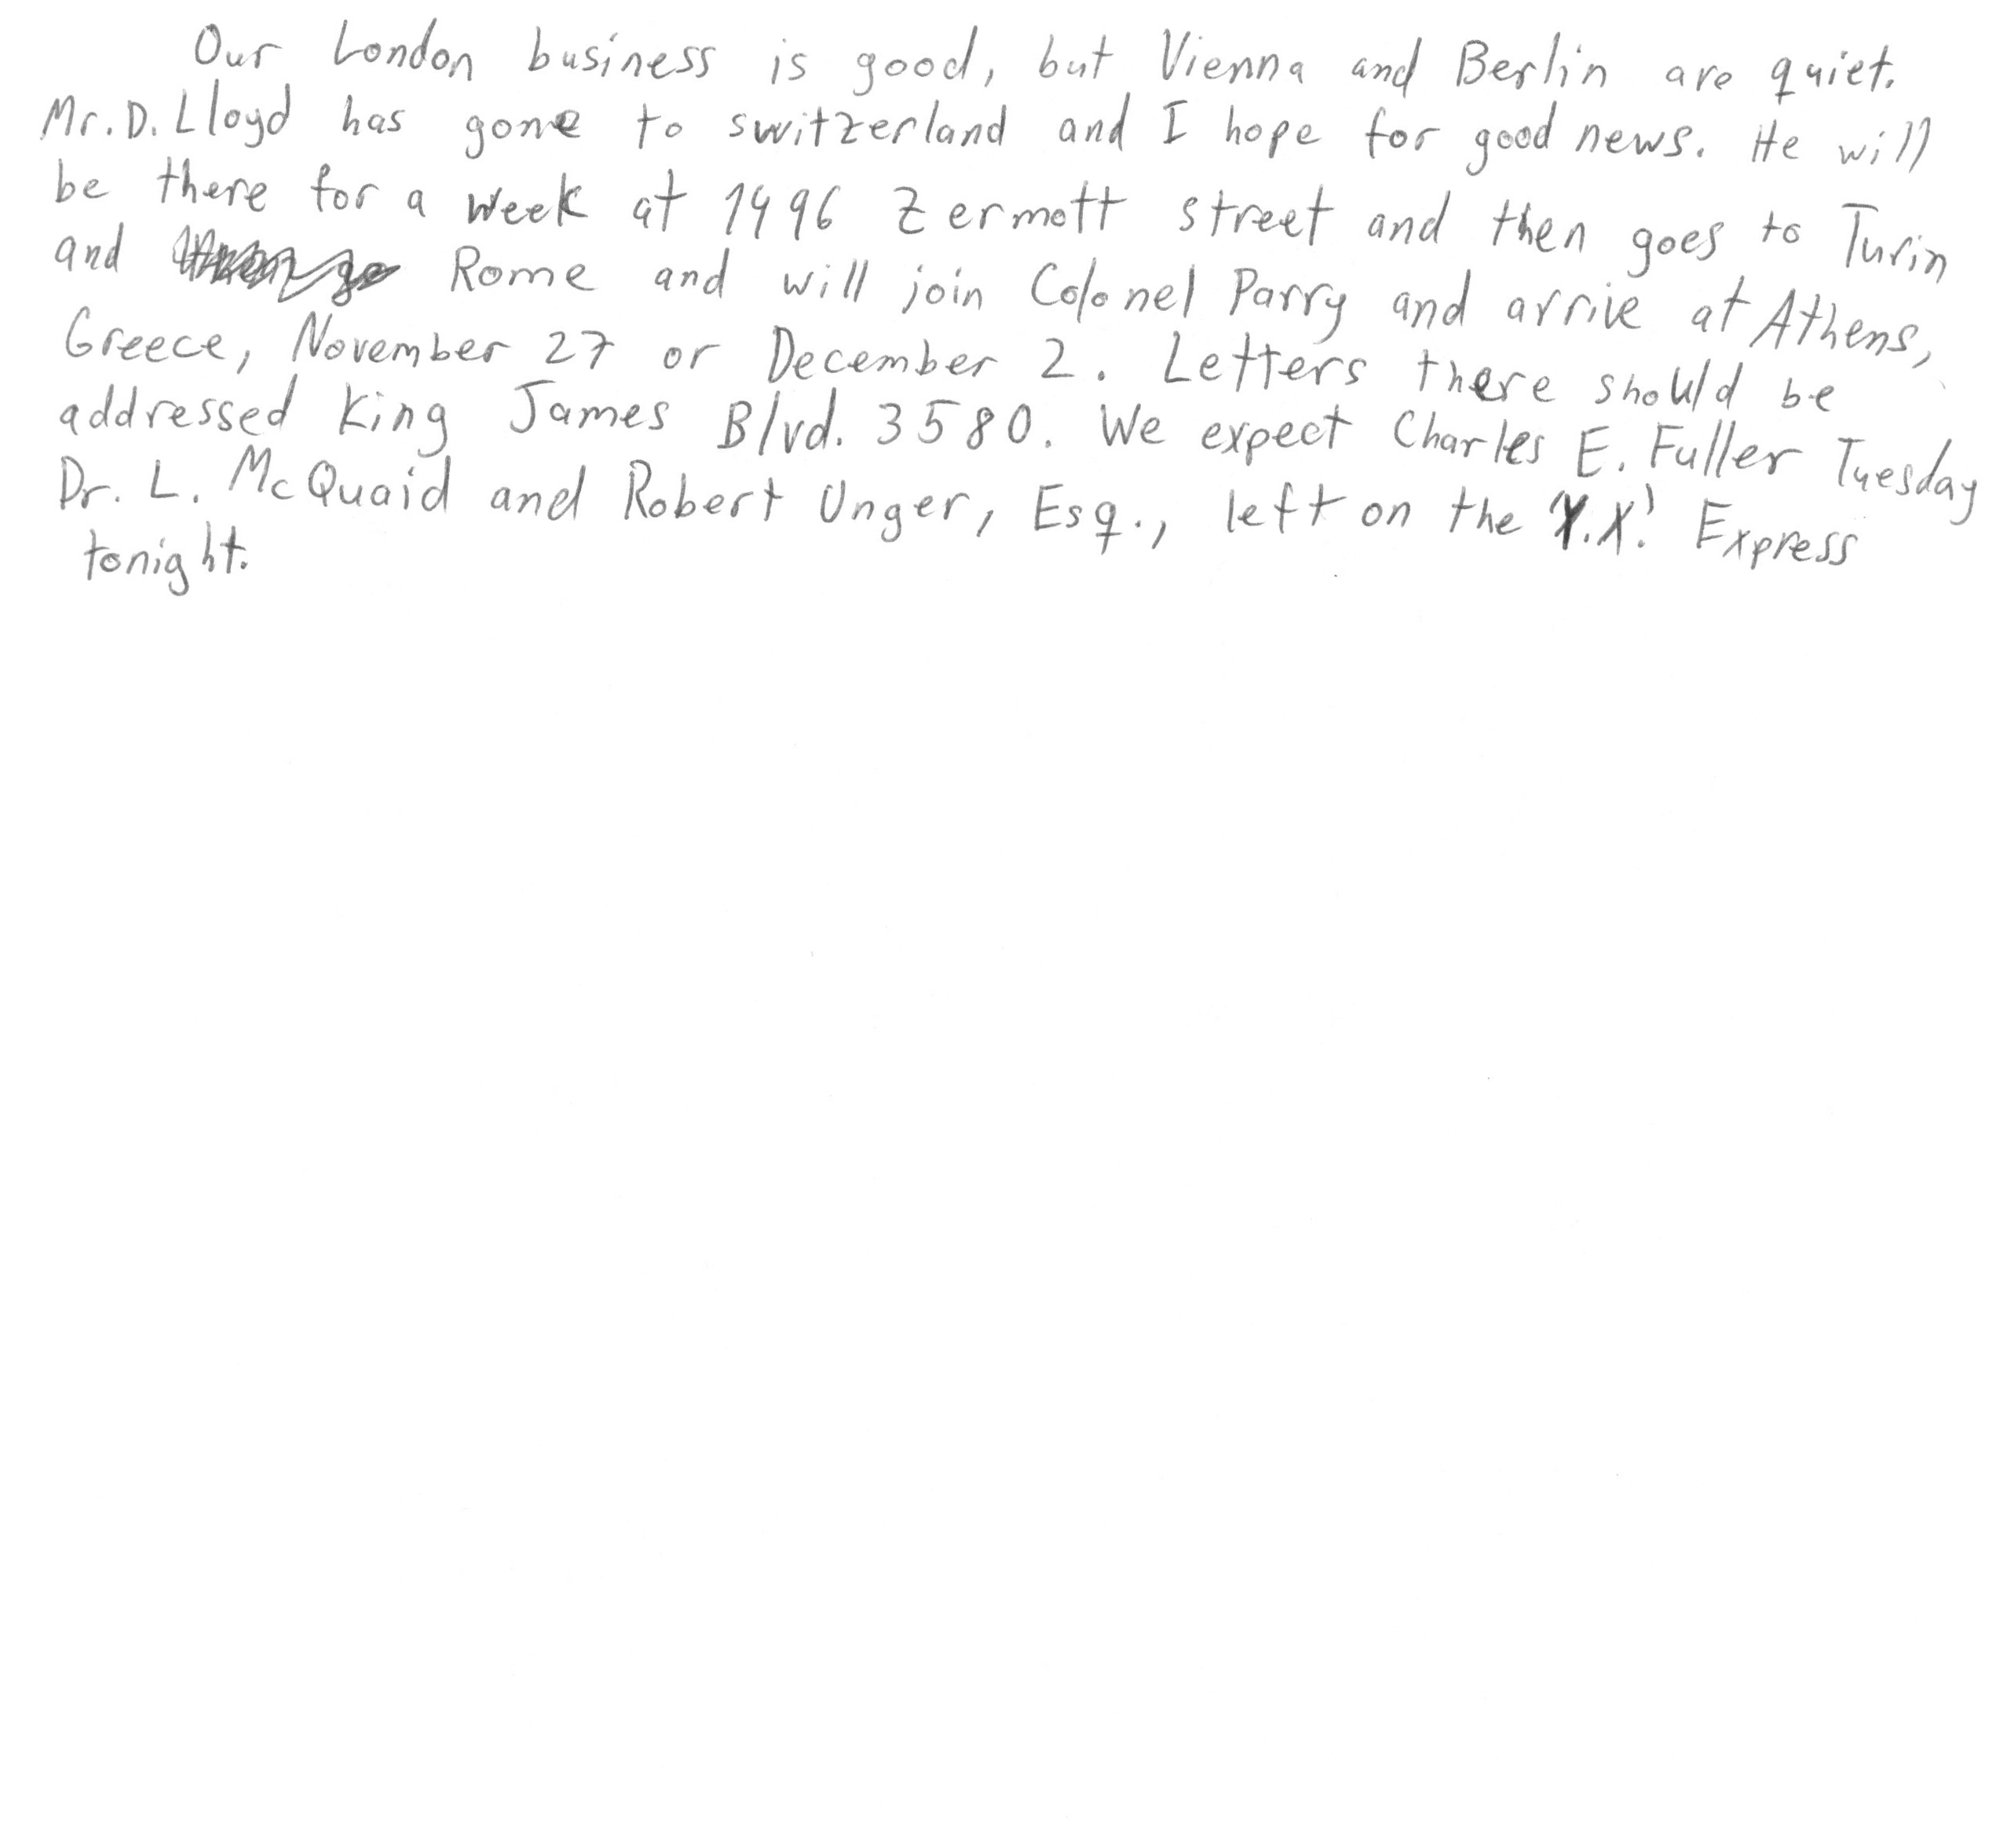 Our London business is good, but Vienna and Berlin are quiet.
Mr. D. Lloyd has gone to switzerland and I hope for good news. He will
be there for a week at 1496 Zermott street and then goes to Turin
and Rome and will join Colonel Parry and arrive at Athens,
Greece, November 27 or December 2. Letters there should be
addressed King James Blvd. 3580. We expect Charles E. Fuller Tuesday
Dr. L. McQuaid and Robert Unger, Esq., left on the 'Y.X.' Express
tonight.